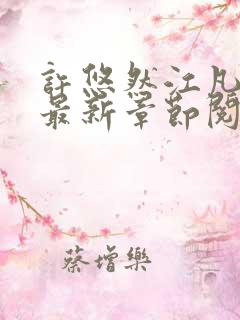 許悠然江凡
最新章節閱
蔡增樂